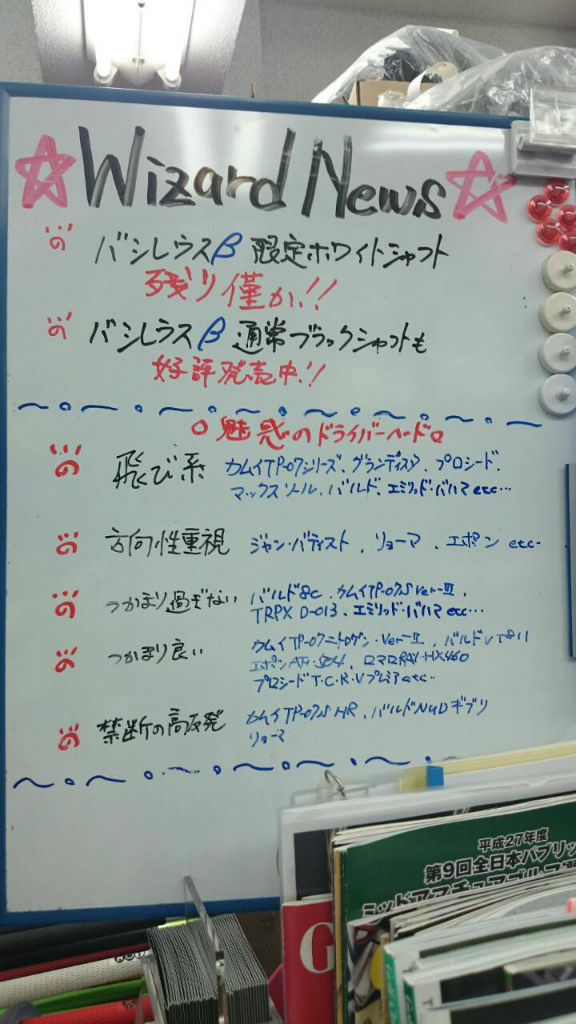 ☆Wizard News☆
バシレウスβ 限定ホワイトシャフト
残り僅か!!
バシレウスβ 通常ブラックシャフトも
好評発売中!!
魅惑のドライバーヘッド
飛び系 カムイTP-07シリーズ、グランディスタ、プロシード、
マックスソール、バルド、エミリッド・バハマ etc…
方向性重視 ジャン・バティスト、リョーマ、エポン etc…
つかまり過ぎない バルド8C、カムイTP-07S Ver-Ⅱ、
TRPX D-013、エミリッド・バハマ etc…
つかまり良い カムイTP-07ニトロゲン・Ver-Ⅱ、バルド
エポンAF-504、ロマロRAY-HX460
プロシードT・C・R・Vプレミア etc…
禁断の高反発 カムイTP-07S HR、バルド ギブリ
リョーマ
平成27年度
第9回全日本パブリッ
ミッドアマチュアゴルフ選
G